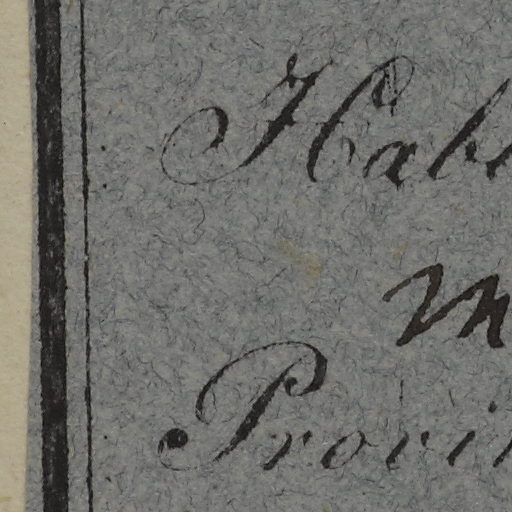 Hab
m
Provin